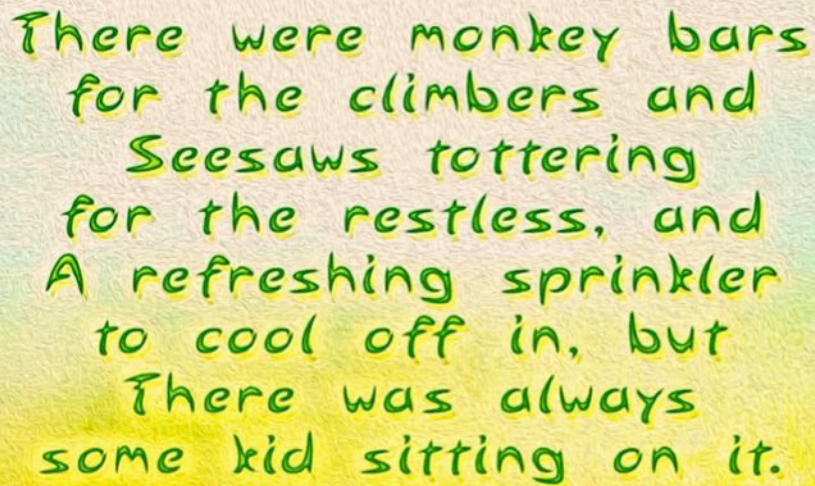 There were monkey bars
for the climbers and
Seesaws tottering
for the restless, and
A refreshing sprinkler
to cool off in, but
There was always
some kid sitting on it.